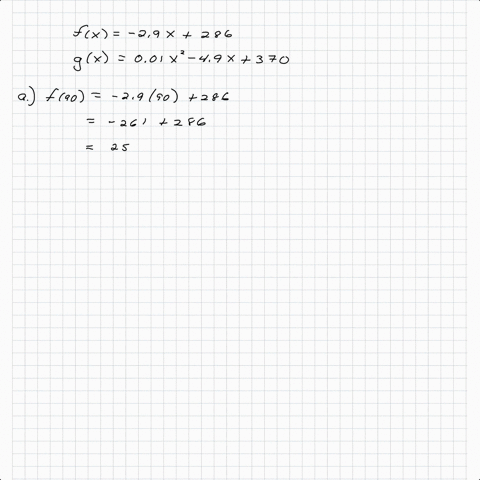 f(x) = -2.9x + 286
g(x) = 0.01x² - 4.9x + 370
a.) f(90) = -2.9(90) + 286
= -261 + 286
= 25